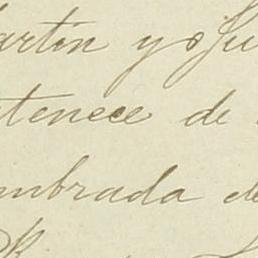 artin y
tenece de
mbrada de